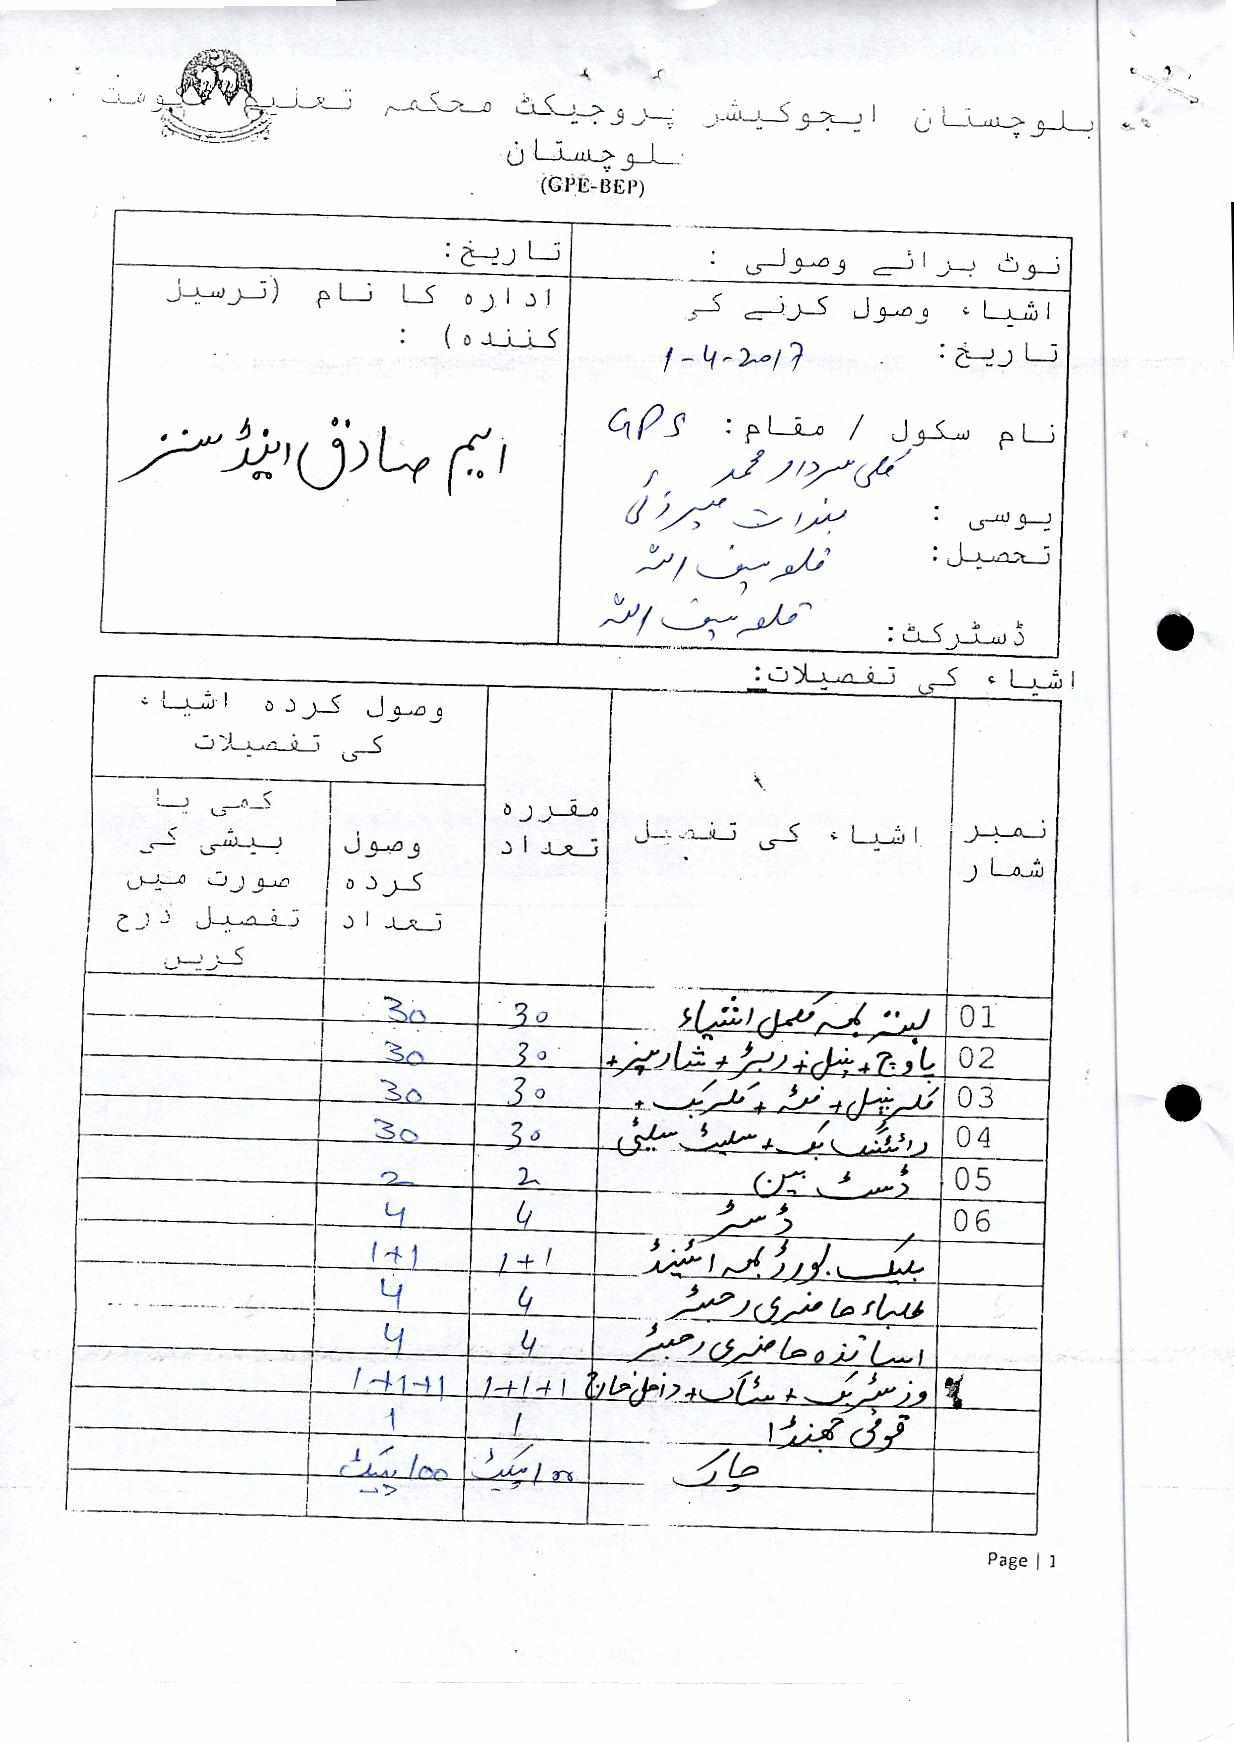 بلوچستان ایجوکیشن پروجیکٹ محکمہ تعلیم
بلوچستان
(GPE-BEP)
نوٹ برائے وصولی :
تاریخ:
اشیاء وصول کرنے کی
تاریخ: 1-4-2017
نام سکول / مقام: GPS
کلی سردار محمد
یوسی :
تحصیل: قلعہ سیف اللہ
ڈسٹرکٹ: قلعہ سیف اللہ
ادارہ کا نام (ترسیل
کنندہ) :
ایم صادق اینڈ سنز
اشیاء کی تفصیلات:
نمبر شمار
اشیاء کی تفصیل
مقررہ تعداد
وصول کردہ اشیاء کی تفصیلات
وصول کردہ تعداد
کمی یا بیشی کی صورت میں تفصیل درج کریں
01 بستہ بمعہ مکمل اشیاء 30 30
02 + پنسل + ربڑ + شارپنر + 30 30
03 کلر پنسل + فٹہ + کلر بک + 30 30
04 رائٹنگ بک + سلیٹ سلیٹی 30 30
05 ڈسٹ بین 2 2
06 ڈسٹر 4 4
بلیک بورڈ بمعہ اسٹینڈ 1+1 1+1
طلباء حاضری رجسٹر 4 4
اساتذہ حاضری رجسٹر 4 4
وزیٹر بک + سٹاک + داخل خارج 1+1+1 1+1+1
قومی جھنڈا 1 1
چاک 100 پیکٹ 100 پیکٹ
Page | 1